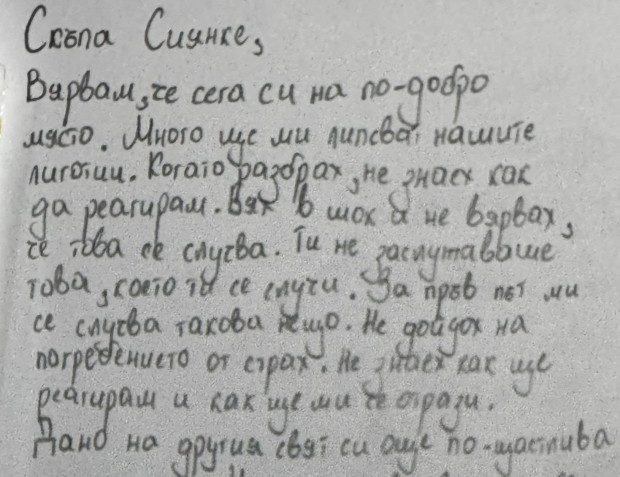 Скъпа Сиянке,
Вярвам, че сега си на по-добро
място. Много ще ми липсват нашите
лиготии. Когато разбрах, не знаех как
да реагирам. Бях в шок и не вярвах,
че това се случва. Ти не заслужаваше
това, което ти се случи. За първ път ми
се случва такова нещо. Не дойдох на
погребението от страх. Не знаех как ще
реагирам и как ще ми се отрази.
Дано на другия свят си още по-щастлива